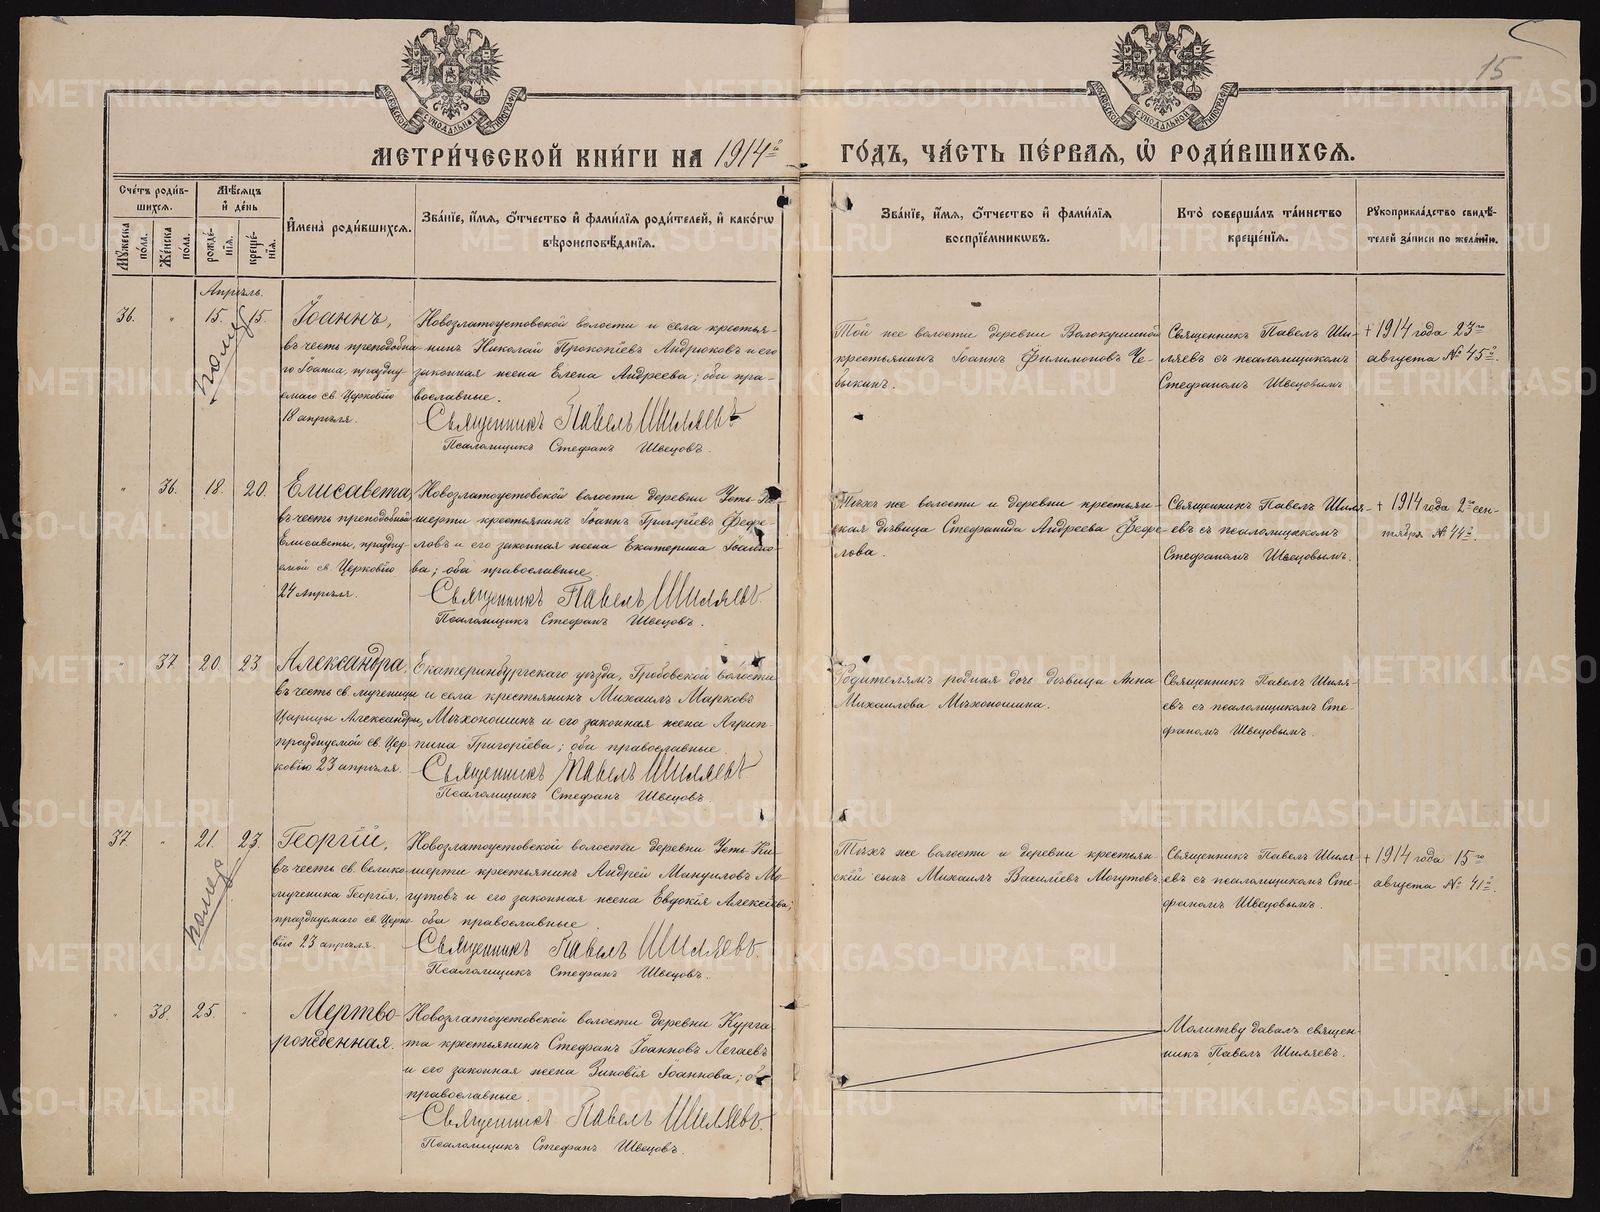 15
МОСКОВСКОЙ СѴНОДАЛЬНОЙ ТИПОГРАФІИ
МОСКОВСКОЙ СѴНОДАЛЬНОЙ ТИПОГРАФІИ
МЕТРИ́ЧЕСКОЙ КНИ́ГИ НА 1914й ГО́ДЪ, ЧА́СТЬ ПЕ́РВАЯ, Ѡ҆ РОДИ́ВШИХСЯ.
Сче́тъ роди́в-
шихся.
Му́жеска по́ла.
Же́нска по́ла.
Мѣ́сяцъ
и҆ де́нь
рожде́-
нїя.
креще́-
нїя.
И҆мена̀ роди́вшихся.
Зва́нїе, и҆́мя, ѻ҆́тчество и҆ фами́лїя роди́телей, и҆ како́гѡ
вѣроисповѣ́данїя.
Зва́нїе, и҆́мя, ѻ҆́тчество и҆ фами́лїя
воспрїе́мникѡвъ.
Кто̀ соверша́лъ та́инство
креще́нїя.
Рꙋкоприкла́дство свидѣ́-
телей за́писи по жела́нїю.
Апрѣль.
36. " 15. 15.
помер
Іоаннъ,
въ честь преподобна-
го Іоанна, праздну-
емаго св. Церковію
18 апрѣля.
Новозлатоустовской волости и села крестья-
нинъ Николай Прокопіевъ Андрюковъ и его
законная жена Елена Андреева; оба пра-
вославные.
Священникъ Павелъ Шиляевъ
Псаломщикъ Стефанъ Швецовъ.
Той же волости деревни Волокушиной
крестьянинъ Іоаннъ Филимоновъ Че-
быкинъ.
Священникъ Павелъ Ши-
ляевъ съ псаломщикомъ
Стефаномъ Швецовымъ
+ 1914 года 23го
августа № 45й.
" 36. 18. 20.
Елисавета,
въ честь преподобной
Елисаветы, праздну-
емой св. Церковію
24 апрѣля.
Новозлатоустовской волости деревни Усть-Ки-
шерти крестьянинъ Іоаннъ Григоріевъ Фефе-
ловъ и его законная жена Екатерина Іоанно-
ва; оба православные.
Священникъ Павелъ Шиляевъ.
Псаломщикъ Стефанъ Швецовъ.
Тѣхъ же волости и деревни крестьян-
ская дѣвица Стефанида Андреева Фефе-
лова.
Священникъ Павелъ Шиля-
евъ съ псаломщикомъ
Стефаномъ Швецовымъ.
+ 1914 года 2го сен-
тября № 44й.
" 37 20. 23
Александра,
въ честь св. мученицы
Царицы Александры,
празднуемой св. Цер-
ковію 23 апрѣля.
Екатеринбургскаго уѣзда, Гробовской волости
и села крестьянинъ Михаилъ Марковъ
Мѣхоношинъ и его законная жена Агрип-
пина Григоріева; оба православные.
Священникъ Павелъ Шиляевъ
Псаломщикъ Стефанъ Швецовъ.
Родителямъ родная дочь дѣвица Анна
Михаилова Мѣхоношина.
Священникъ Павелъ Шиля-
евъ съ псаломщикомъ Сте-
фаномъ Швецовымъ.
37. " 21. 23.
помер
Георгій,
въ честь св. Велико-
мученика Георгія,
празднуемаго св. Церко-
вію 23 апрѣля.
Новозлатоустовской волости деревни Усть-Ки-
шерти крестьянинъ Андрей Мануиловъ Мо-
гутовъ и его законная жена Евдокія Алексѣева;
оба православные.
Священникъ Павелъ Шиляевъ.
Псаломщикъ Стефанъ Швецовъ.
Тѣхъ же волости и деревни крестьян-
скій сынъ Михаилъ Василіевъ Могутовъ.
Священникъ Павелъ Шиля-
евъ съ псаломщикомъ Сте-
фаномъ Швецовымъ.
+ 1914 года 15го
августа № 41й.
" 38. 25. "
Мертво-
рожденная.
Новозлатоустовской волости деревни Курга-
та крестьянинъ Стефанъ Іоанновъ Легаевъ
и его законная жена Зиновія Іоаннова; оба
православные.
Священникъ Павелъ Шиляевъ.
Псаломщикъ Стефанъ Швецовъ.
Молитву давалъ священ-
никъ Павелъ Шиляевъ.
METRIKI.GASO-URAL.RU